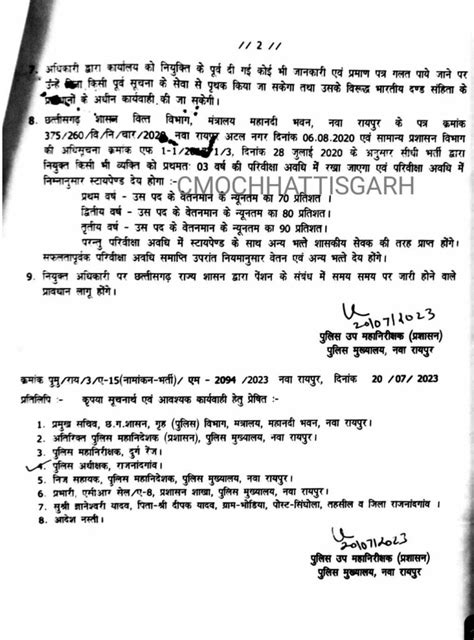 // 2 //
7. अधिकारी द्वारा कार्यालय को नियुक्ति के पूर्व दी गई कोई भी जानकारी एवं प्रमाण पत्र गलत पाये जाने पर
उन्हें बिना किसी पूर्व सूचना के सेवा से पृथक किया जा सकेगा तथा उसके विरूद्ध भारतीय दण्ड संहिता के
के अधीन कार्यवाही की जा सकेगी।
8. छत्तीसगढ़ शासन वित्त विभाग, मंत्रालय महानदी भवन, नवा रायपुर के पत्र क्रमांक
375/260/वि/नि/चार/2020, नवा रायपुर अटल नगर दिनांक 06.08.2020 एवं सामान्य प्रशासन विभाग
की अधिसूचना क्रमांक एफ 1-1/ /1/3, दिनांक 28 जुलाई 2020 के अनुसार सीधी भर्ती द्वारा
नियुक्त किसी भी व्यक्ति को प्रथमतः 03 वर्ष की परिवीक्षा अवधि में रखा जाएगा एवं परिवीक्षा अवधि में
निम्नानुसार स्टायपेण्ड देय होगा :-
CMOCHHATTISGARH
प्रथम वर्ष - उस पद के वेतनमान के न्यूनतम का 70 प्रतिशत ।
द्वितीय वर्ष - उस पद के वेतनमान के न्यूनतम का 80 प्रतिशत।
तृतीय वर्ष - उस पद के वेतनमान के न्यूनतम का 90 प्रतिशत।
परन्तु परिवीक्षा अवधि में स्टायपेण्ड के साथ अन्य भत्ते शासकीय सेवक की तरह प्राप्त होंगे।
सफलतापूर्वक परिवीक्षा अवधि समाप्ति उपरांत नियमानुसार वेतन एवं अन्य भत्ते देय होंगे।
9. नियुक्त अधिकारी पर छत्तीसगढ़ राज्य शासन द्वारा पेंशन के संबंध में समय समय पर जारी होने वाले
प्रावधान लागू होंगे।
20/07/2023
पुलिस उप महानिरीक्षक (प्रशासन)
पुलिस मुख्यालय, नवा रायपुर
क्रमांक पुमु/राय/3/ए-15(नामांकन-भर्ती)/ एम - 2094 /2023 नवा रायपुर, दिनांक 20 /07/ 2023
प्रतिलिपि :- कृपया सूचनार्थ एवं आवश्यक कार्यवाही हेतु प्रेषित :-
1. प्रमुख सचिव, छ.ग.शासन, गृह (पुलिस) विभाग, मंत्रालय, महानदी भवन, नवा रायपुर।
2. अतिरिक्त पुलिस महानिदेशक (प्रशासन), पुलिस मुख्यालय, नवा रायपुर।
3. पुलिस महानिरीक्षक, दुर्ग रेंज।
4. पुलिस अधीक्षक, राजनांदगांव।
5. निज सहायक, पुलिस महानिदेशक, पुलिस मुख्यालय, नवा रायपुर।
6. प्रभारी, एसीआर सेल/ए-8, प्रशासन शाखा, पुलिस मुख्यालय, नवा रायपुर।
7. सुश्री ज्ञानेश्वरी यादव, पिता-श्री दीपक यादव, ग्राम-भोडिया, पोस्ट-सिंघोला, तहसील व जिला राजनांदगांव ।
8. आदेश नस्ती।
20/07/2023
पुलिस उप महानिरीक्षक (प्रशासन)
पुलिस मुख्यालय, नवा रायपुर